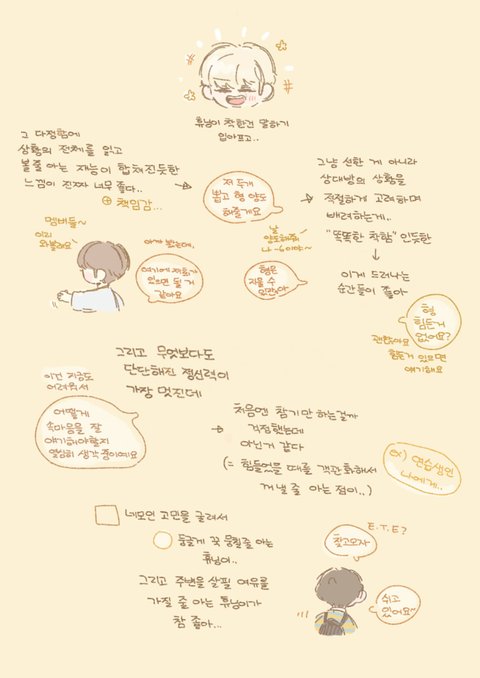 휴닝이 착한건 말하기
입아프고..
그 다정함에
상황의 전체를 읽고
볼줄 아는 재능이 합쳐진듯한
느낌이 진짜 너무 좋다..
+ 책임감...
저 두개
뽑고 형 양도
해줄게요
그냥 선한 게 아니라
상대방의 상황을
적절하게 고려하며
배려하는게..
"똑똑한 착함" 인듯한
이게 드러나는
순간들이 좋아
멤버들~
이리
와볼래요
아까 봤는데,
여기에 저희가
있으면 될 거
같아요
날
양도해줘
나 -6이야~
형은
지울 수
형
힘든거
없어요?
괜찮아요
힘든거 있으면
얘기해요
그리고 무엇보다도
단단해진 정신력이
가장 멋진데
이런 지금도
어려워서
어떻게
속마음을 잘
얘기해야할지
열심히 생각 중이에요
처음엔 참기만 하는걸까
걱정했는데
아닌거 같다
(= 힘들었을 때를 객관화해서
꺼낼 줄 아는 점이..)
ex) 연습생인
나에게..
네모인 고민을 굴려서
둥글게 꼭 뭉칠줄 아는
휴닝이..
그리고 주변을 살필 여유를
가질 줄 아는 휴닝이가
참 좋아...
E.T.E?
찾고모자
쉬고
있어요~